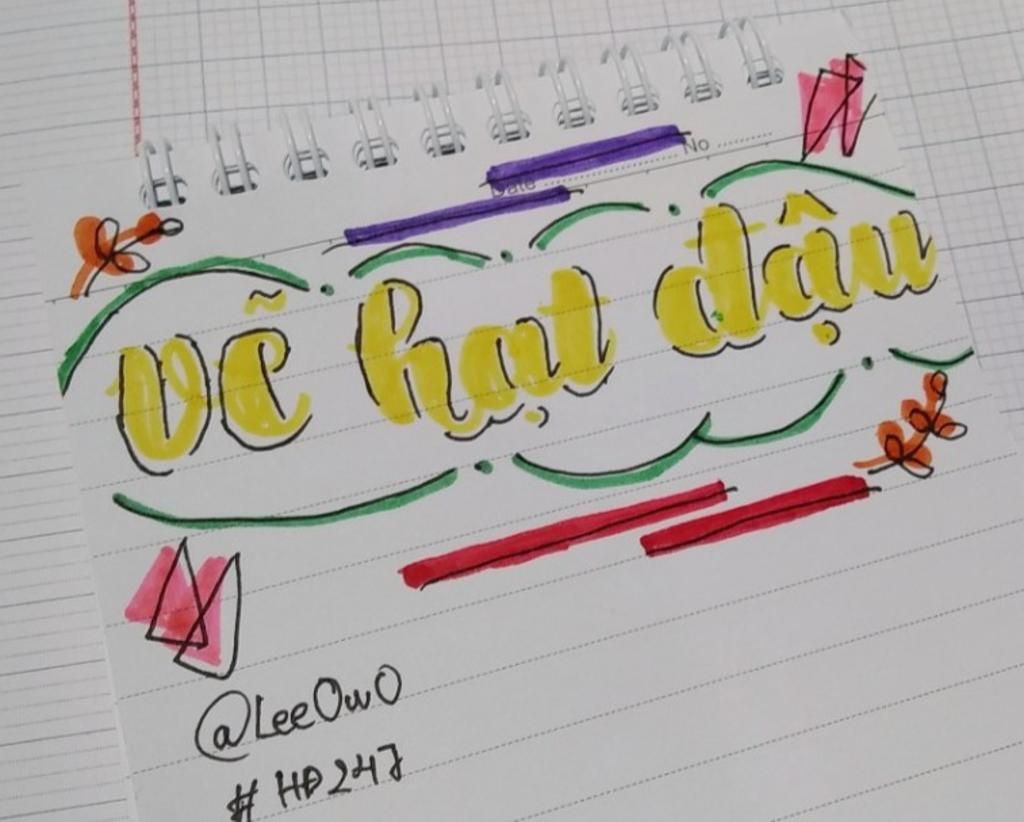 Date No
Vẽ hạt đậu
@LeeOwO
# HĐ247